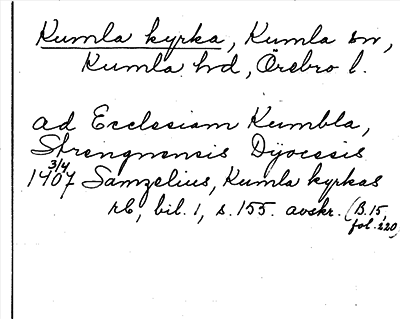 Kumla kyrka, Kumla sn,
Kumla hd, Örebro l.
ad Ecclesiam Kumbla,
Strengnensis Dyocesis
3/4
1407 Samzelius, Kumla kyrkas
rb, bil. 1, s. 155. avskr. (B. 15,
fol. 220)